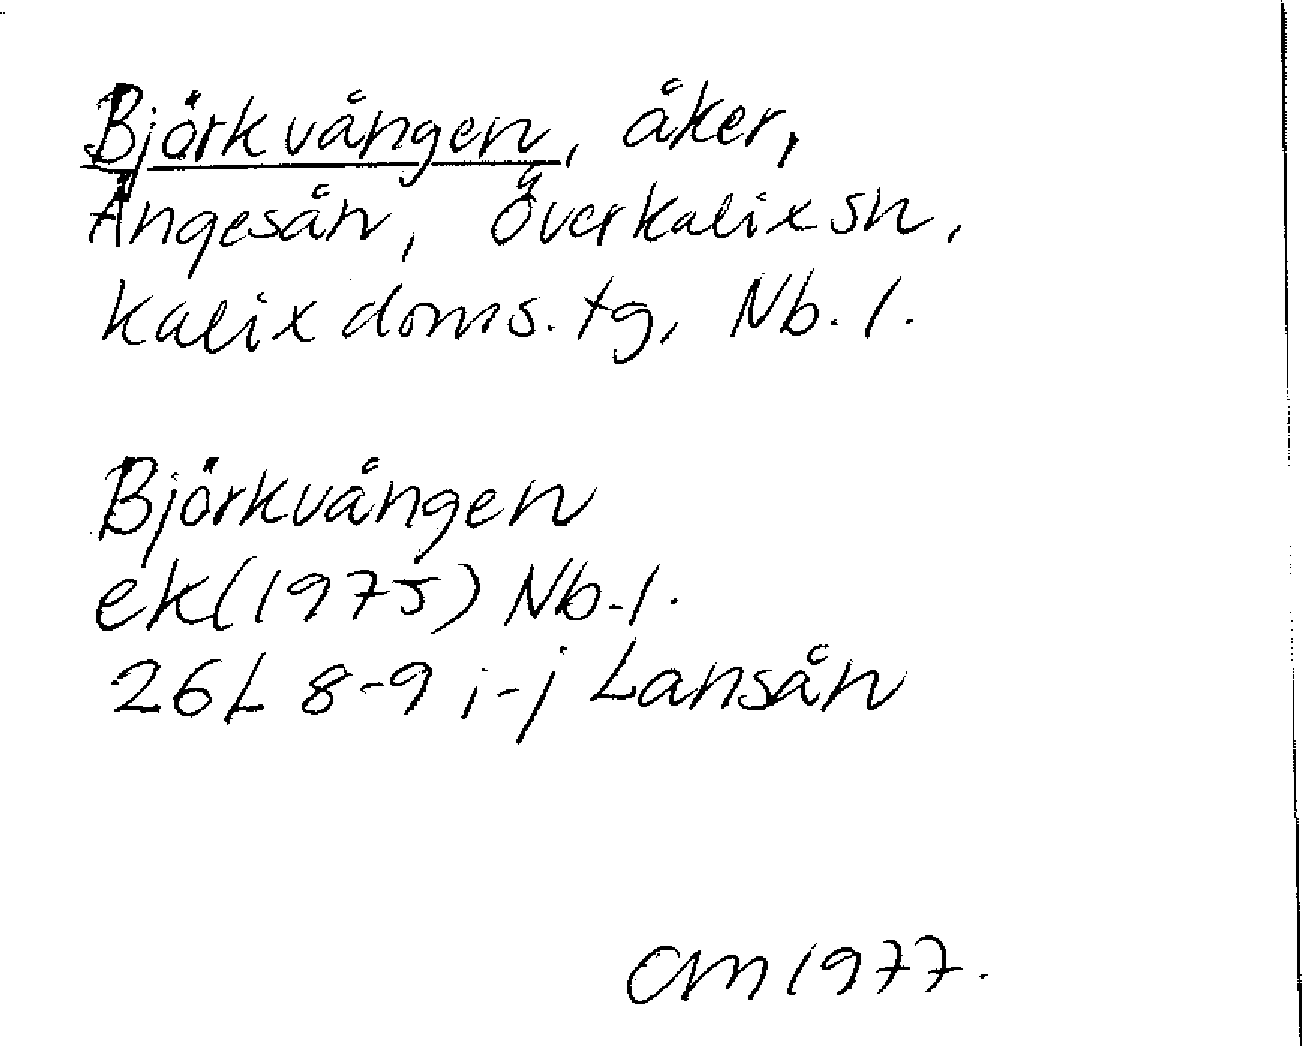 Björkvången, åker,
Ängesån, Överkalix sn,
Kalix doms. tg, Nb. l.
Björkvången
ek (1975) Nb. l.
26L 8-9 i-j Lansån
CM 1977.